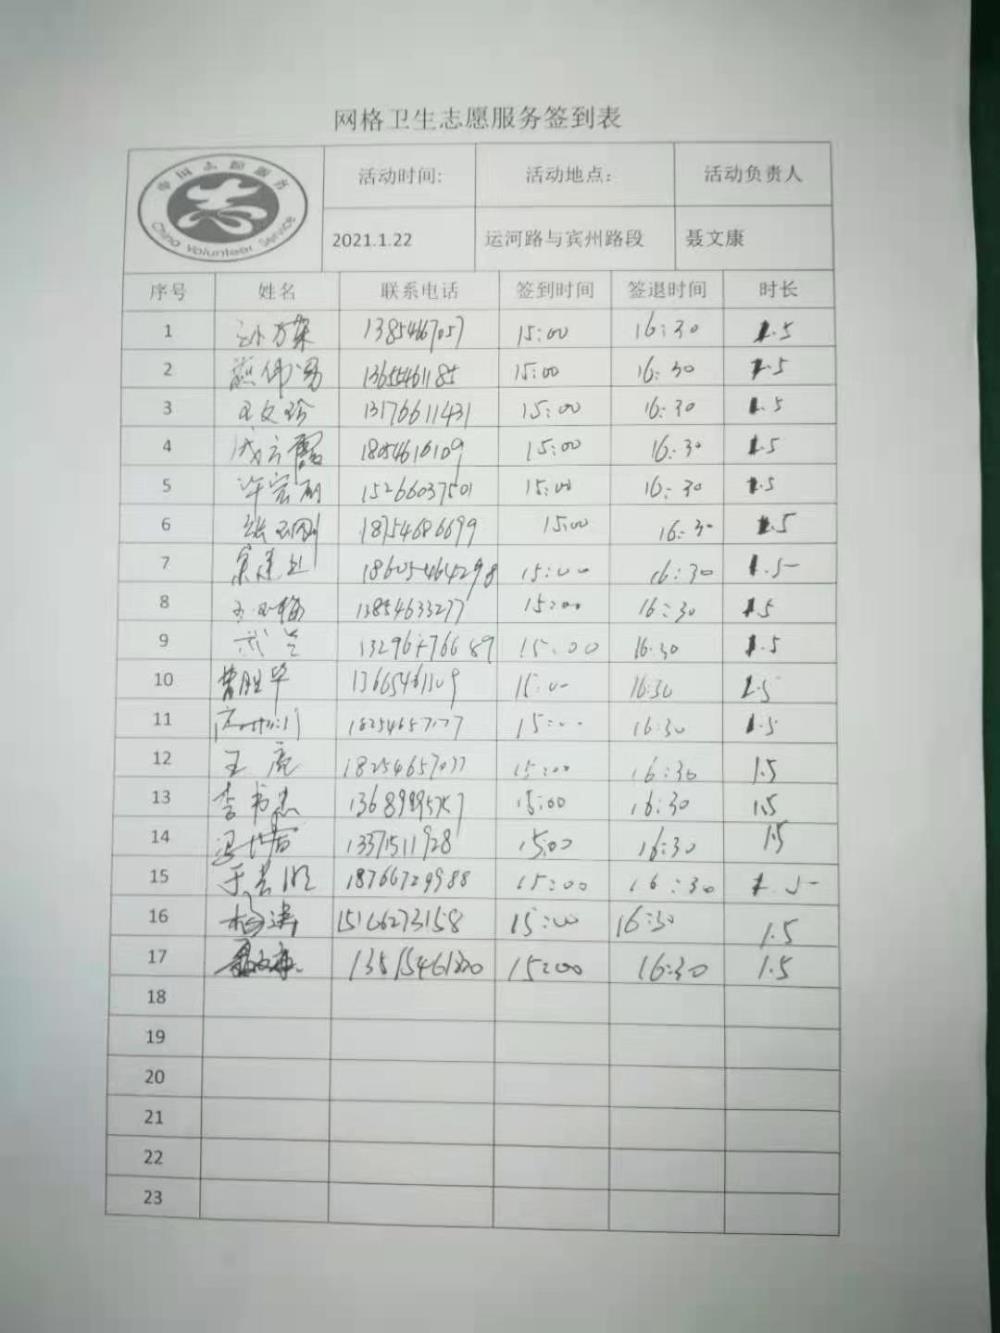 网格卫生志愿服务签到表
中国志愿服务
China Volunteer Service
活动时间: 活动地点: 活动负责人
2021.1.22 运河路与宾州路段 聂文康
序号 姓名 联系电话 签到时间 签退时间 时长
1 15:00 16:30 1.5
2 13655461185 15:00 16:30 1.5
3 王文珍 13176611431 15:00 16:30 1.5
4 18054616109 15:00 16:30 1.5
5 15266037501 15:00 16:30 1.5
6 18754686699 15:00 16:30 1.5
7 18605464298 15:00 16:30 1.5
8 13854633277 15:00 16:30 1.5
9 15:00 16:30 1.5
10 15:00 16:30 1.5
11 15:00 16:30 1.5
12 王亮 15:00 16:30 1.5
13 李书杰 15:00 16:30 1.5
14 13371511928 15:00 16:30 1.5
15 18766729988 15:00 16:30 1.5
16 杨涛 15166273158 15:00 16:30 1.5
17 聂文康 15:00 16:30 1.5
18
19
20
21
22
23